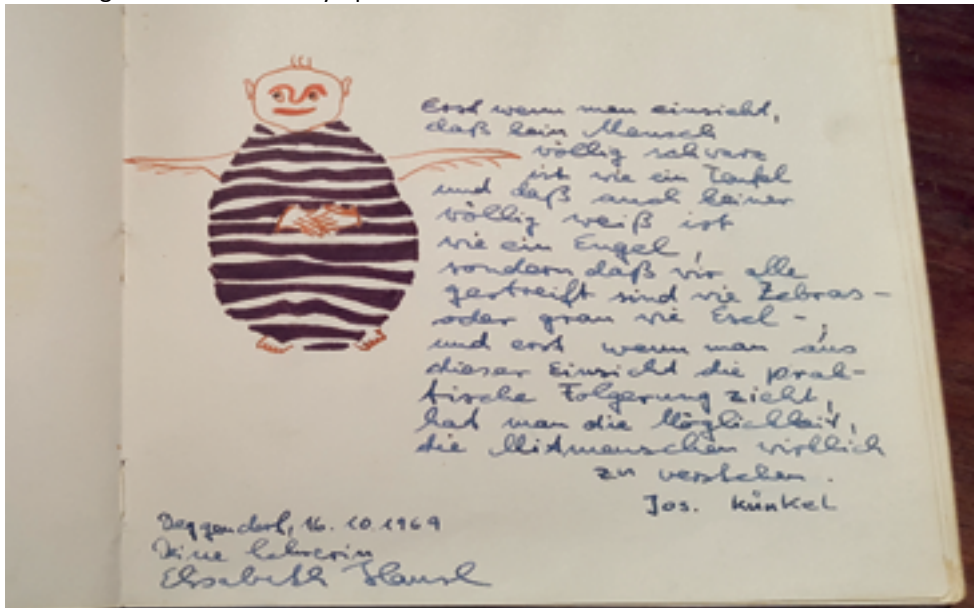 Erst wenn man einsieht,
daß kein Mensch
völlig schwarz
ist wie ein Teufel
und daß auch keiner
völlig weiß ist
wie ein Engel,
sondern daß wir alle
gestreift sind wie Zebras –
oder grau wie Esel –,
und erst wenn man aus
dieser Einsicht die prak-
tische Folgerung zieht,
hat man die Möglichkeit,
die Mitmenschen wirklich
zu verstehen.
Jos. Künkel
Deggendorf, 16.10.1969
Deine Lehrerin
Elisabeth